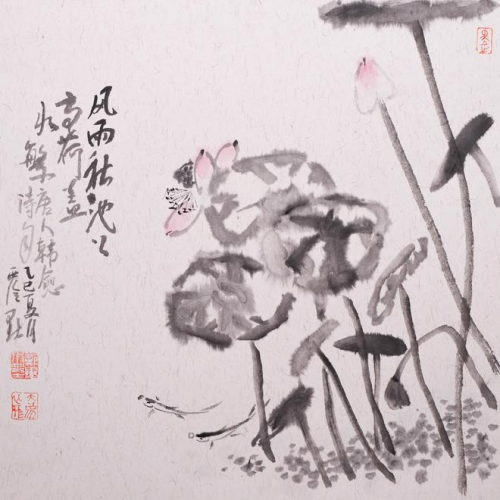 风雨秋池上
高荷盖
水繁
唐人韩愈
诗句
乙巳夏月